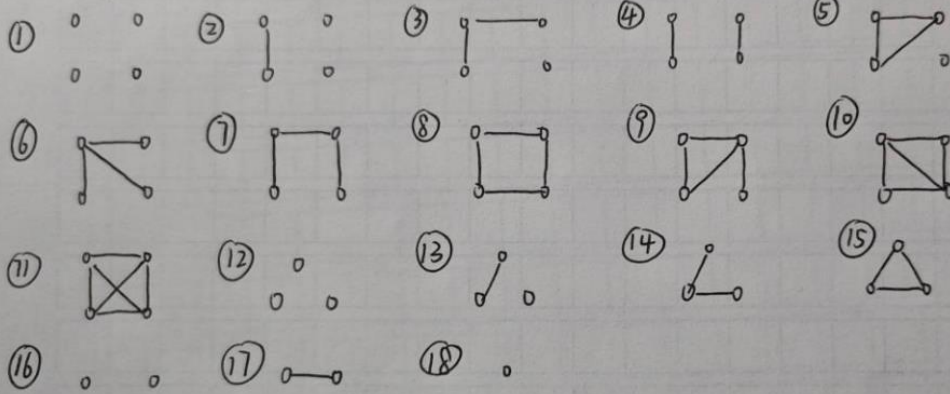 ① ② ③ ④ ⑤
⑥ ⑦ ⑧ ⑨ ⑩
⑪ ⑫ ⑬ ⑭ ⑮
⑯ ⑰ ⑱